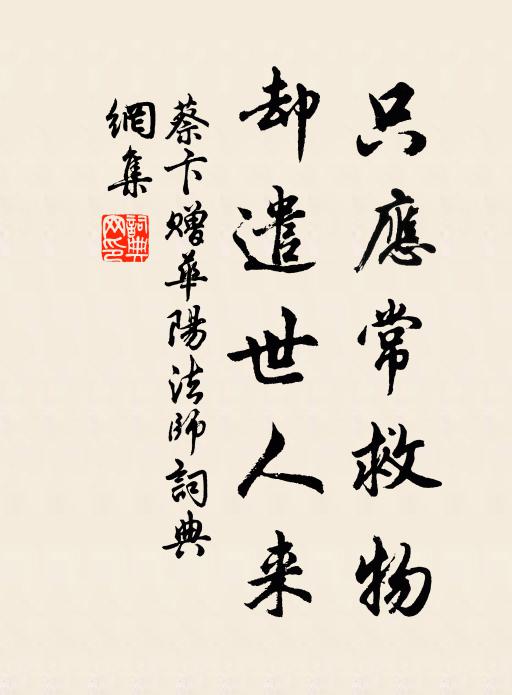 只應常救物
却遣世人来
蔡卞贈華陽法師詞典
網集
詞典
网印